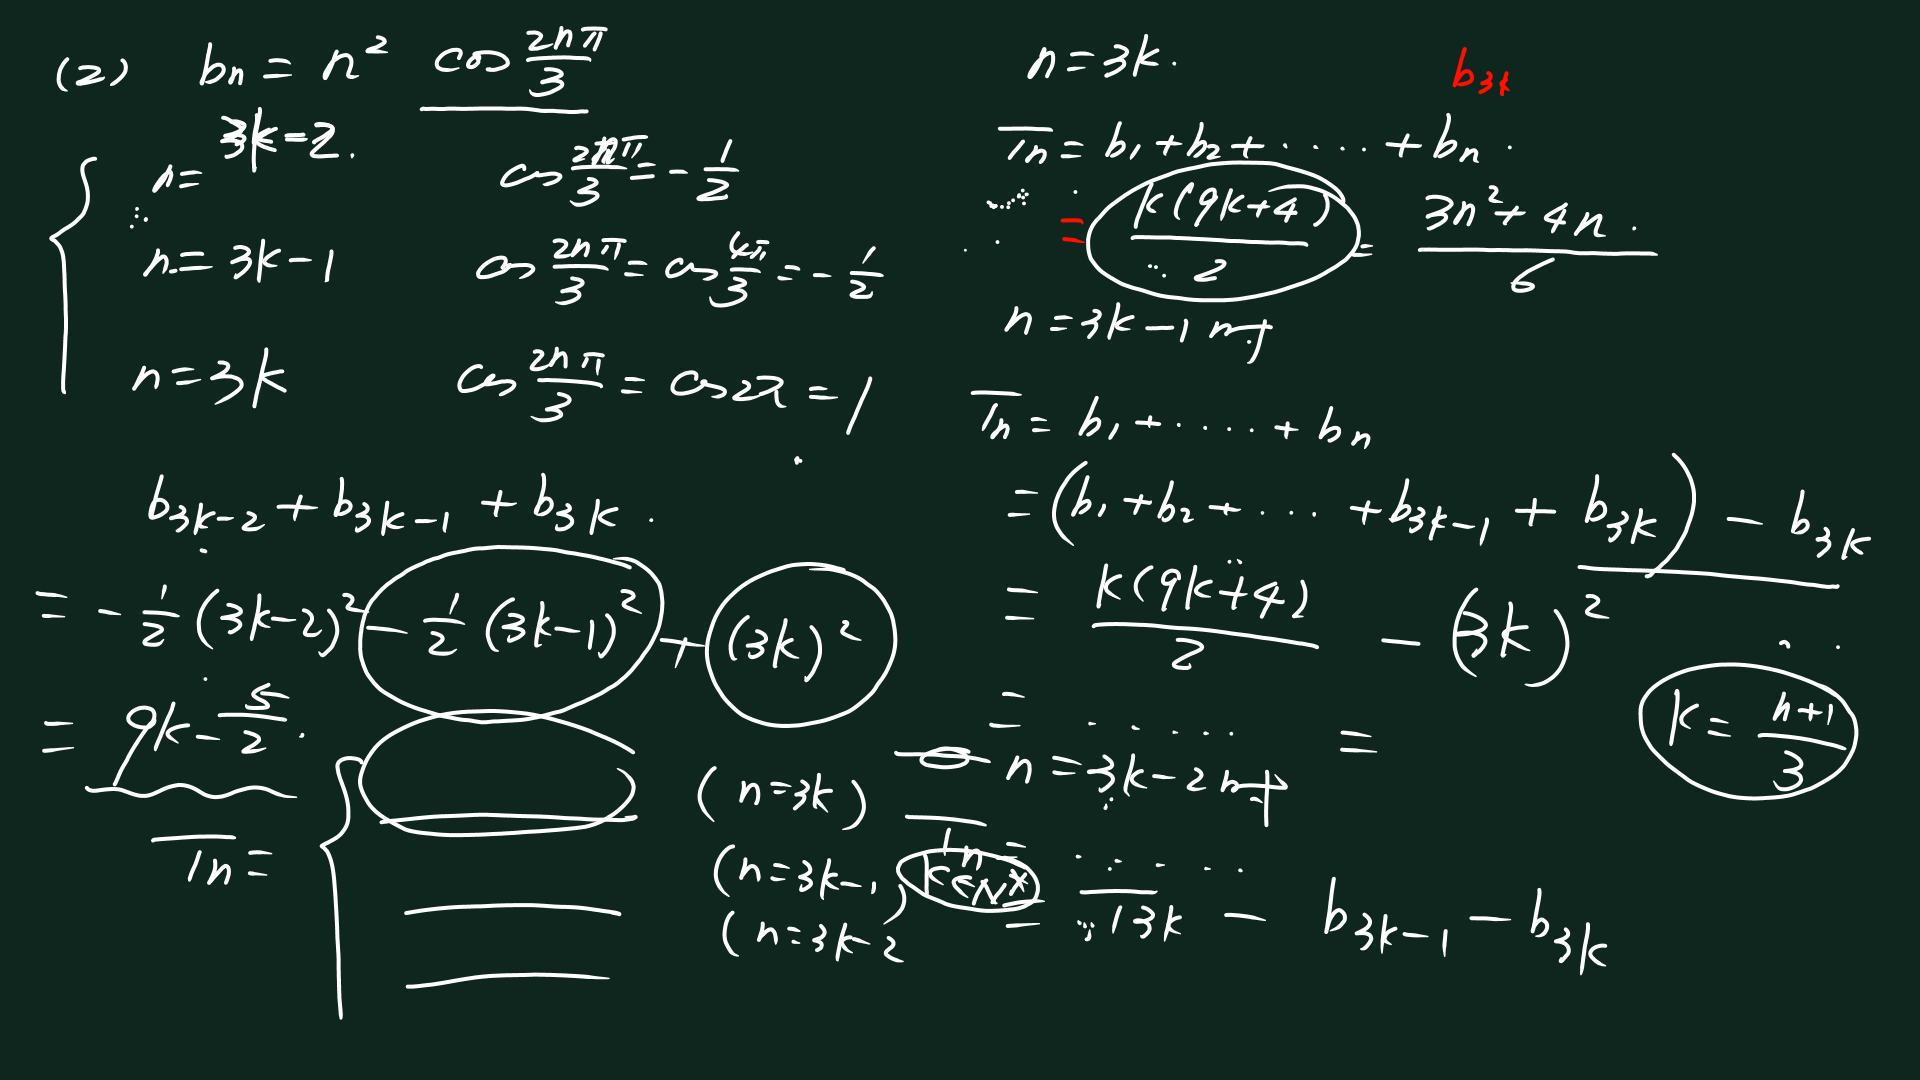 (2) bn = n² cos 2nπ/3
n = 3k-2. cos 2nπ/3 = -1/2
n = 3k-1 cos 2nπ/3 = cos 4π/3 = -1/2
n = 3k cos 2nπ/3 = cos2π = 1
b3k-2 + b3k-1 + b3k.
= -1/2 (3k-2)² - 1/2 (3k-1)² + (3k)²
= 9k - 5/2.
Tn = {
(n=3k)
(n=3k-1)
(n=3k-2
k∈N*
n = 3k.
b3k
Tn = b1 + b2 + ····· + bn.
= k(9k+4)/2 = 3n²+4n/6
n = 3k-1 时
Tn = b1 + ····· + bn
= (b1 + b2 + ··· + b3k-1 + b3k) - b3k
= k(9k+4)/2 - (3k)²
= ····· =
k = n+1/3
n = 3k-2 时
Tn = ·····
= T3k - b3k-1 - b3k